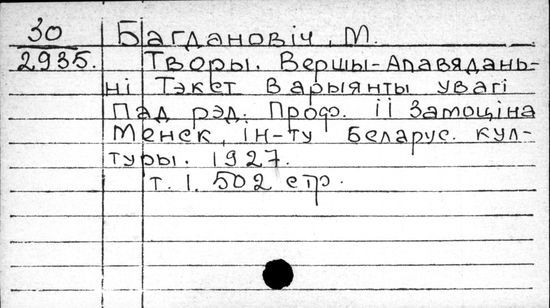 30 Багдановіч, М.
2935. Творы. Вершы-Апавядань-
ні Тэкст Варыянты увагі
Пад рэд. Проф. ІІ Замоціна
Менск, ін-ту Беларус. кул-
туры. 1927.
т. 1. 502 стр.